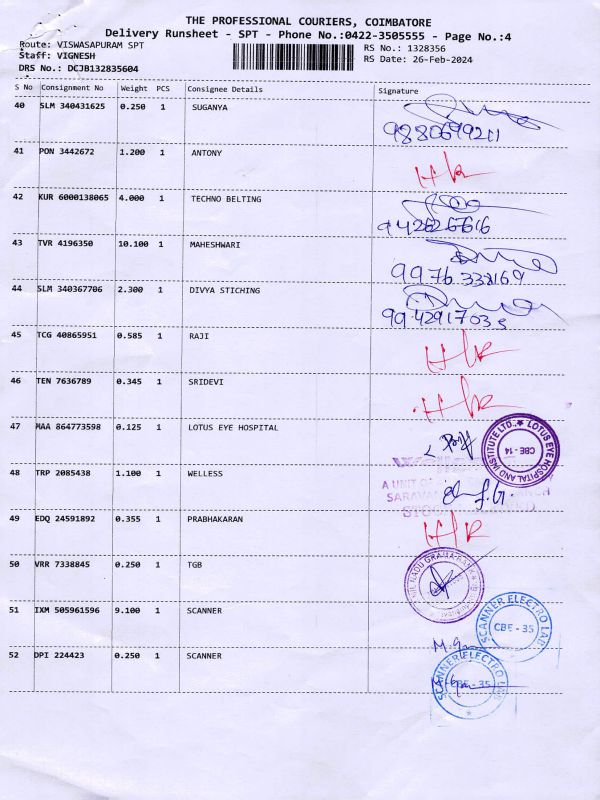 THE PROFESSIONAL COURIERS, COIMBATORE
Delivery Runsheet - SPT - Phone No.:0422-3505555 - Page No.:4
Route: VISWASAPURAM SPT
RS No.: 1328356
Staff: VIGNESH
RS Date: 26-Feb-2024
DRS No.: DCJB132835604
S No Consignment No Weight PCS Consignee Details Signature
40 SLM 340431625 0.250 1 SUGANYA
9880699211
41 PON 3442672 1.200 1 ANTONY
42 KUR 6000138065 4.000 1 TECHNO BELTING
9426267616
43 TVR 4196350 10.100 1 MAHESHWARI
9976338169
44 SLM 340367706 2.300 1 DIVYA STICHING
9942917035
45 TCG 40865951 0.585 1 RAJI
46 TEN 7636789 0.345 1 SRIDEVI
47 MAA 864773598 0.125 1 LOTUS EYE HOSPITAL
LOTUS EYE HOSPITAL AND INSTITUTE LTD.,
CBE - 14
48 TRP 2085438 1.100 1 WELLESS
A UNIT OF
49 EDQ 24591892 0.355 1 PRABHAKARAN
50 VRR 7338845 0.250 1 TGB
51 IXM 505961596 9.100 1 SCANNER
SCANNER ELECTRO LAB
CBE - 35
52 DPI 224423 0.250 1 SCANNER
SCANNER ELECTRO LAB
CBE - 35